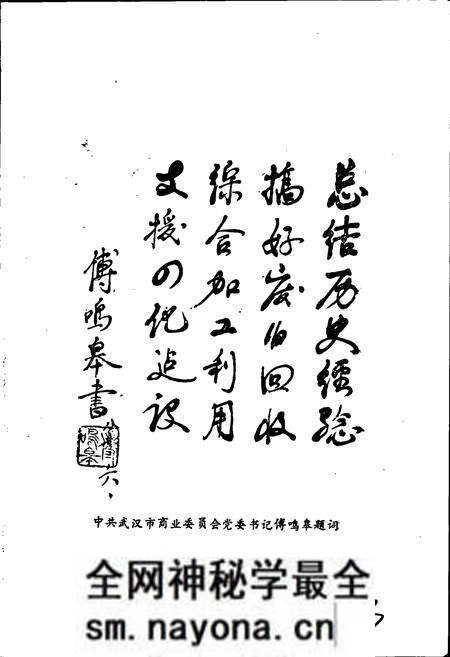 总结历史经验
搞好废旧回收
综合加工利用
支援四化建设
傅鸣皋书
中共武汉市商业委员会党委书记傅鸣皋题词
全网神秘学最全
sm.nayona.cn